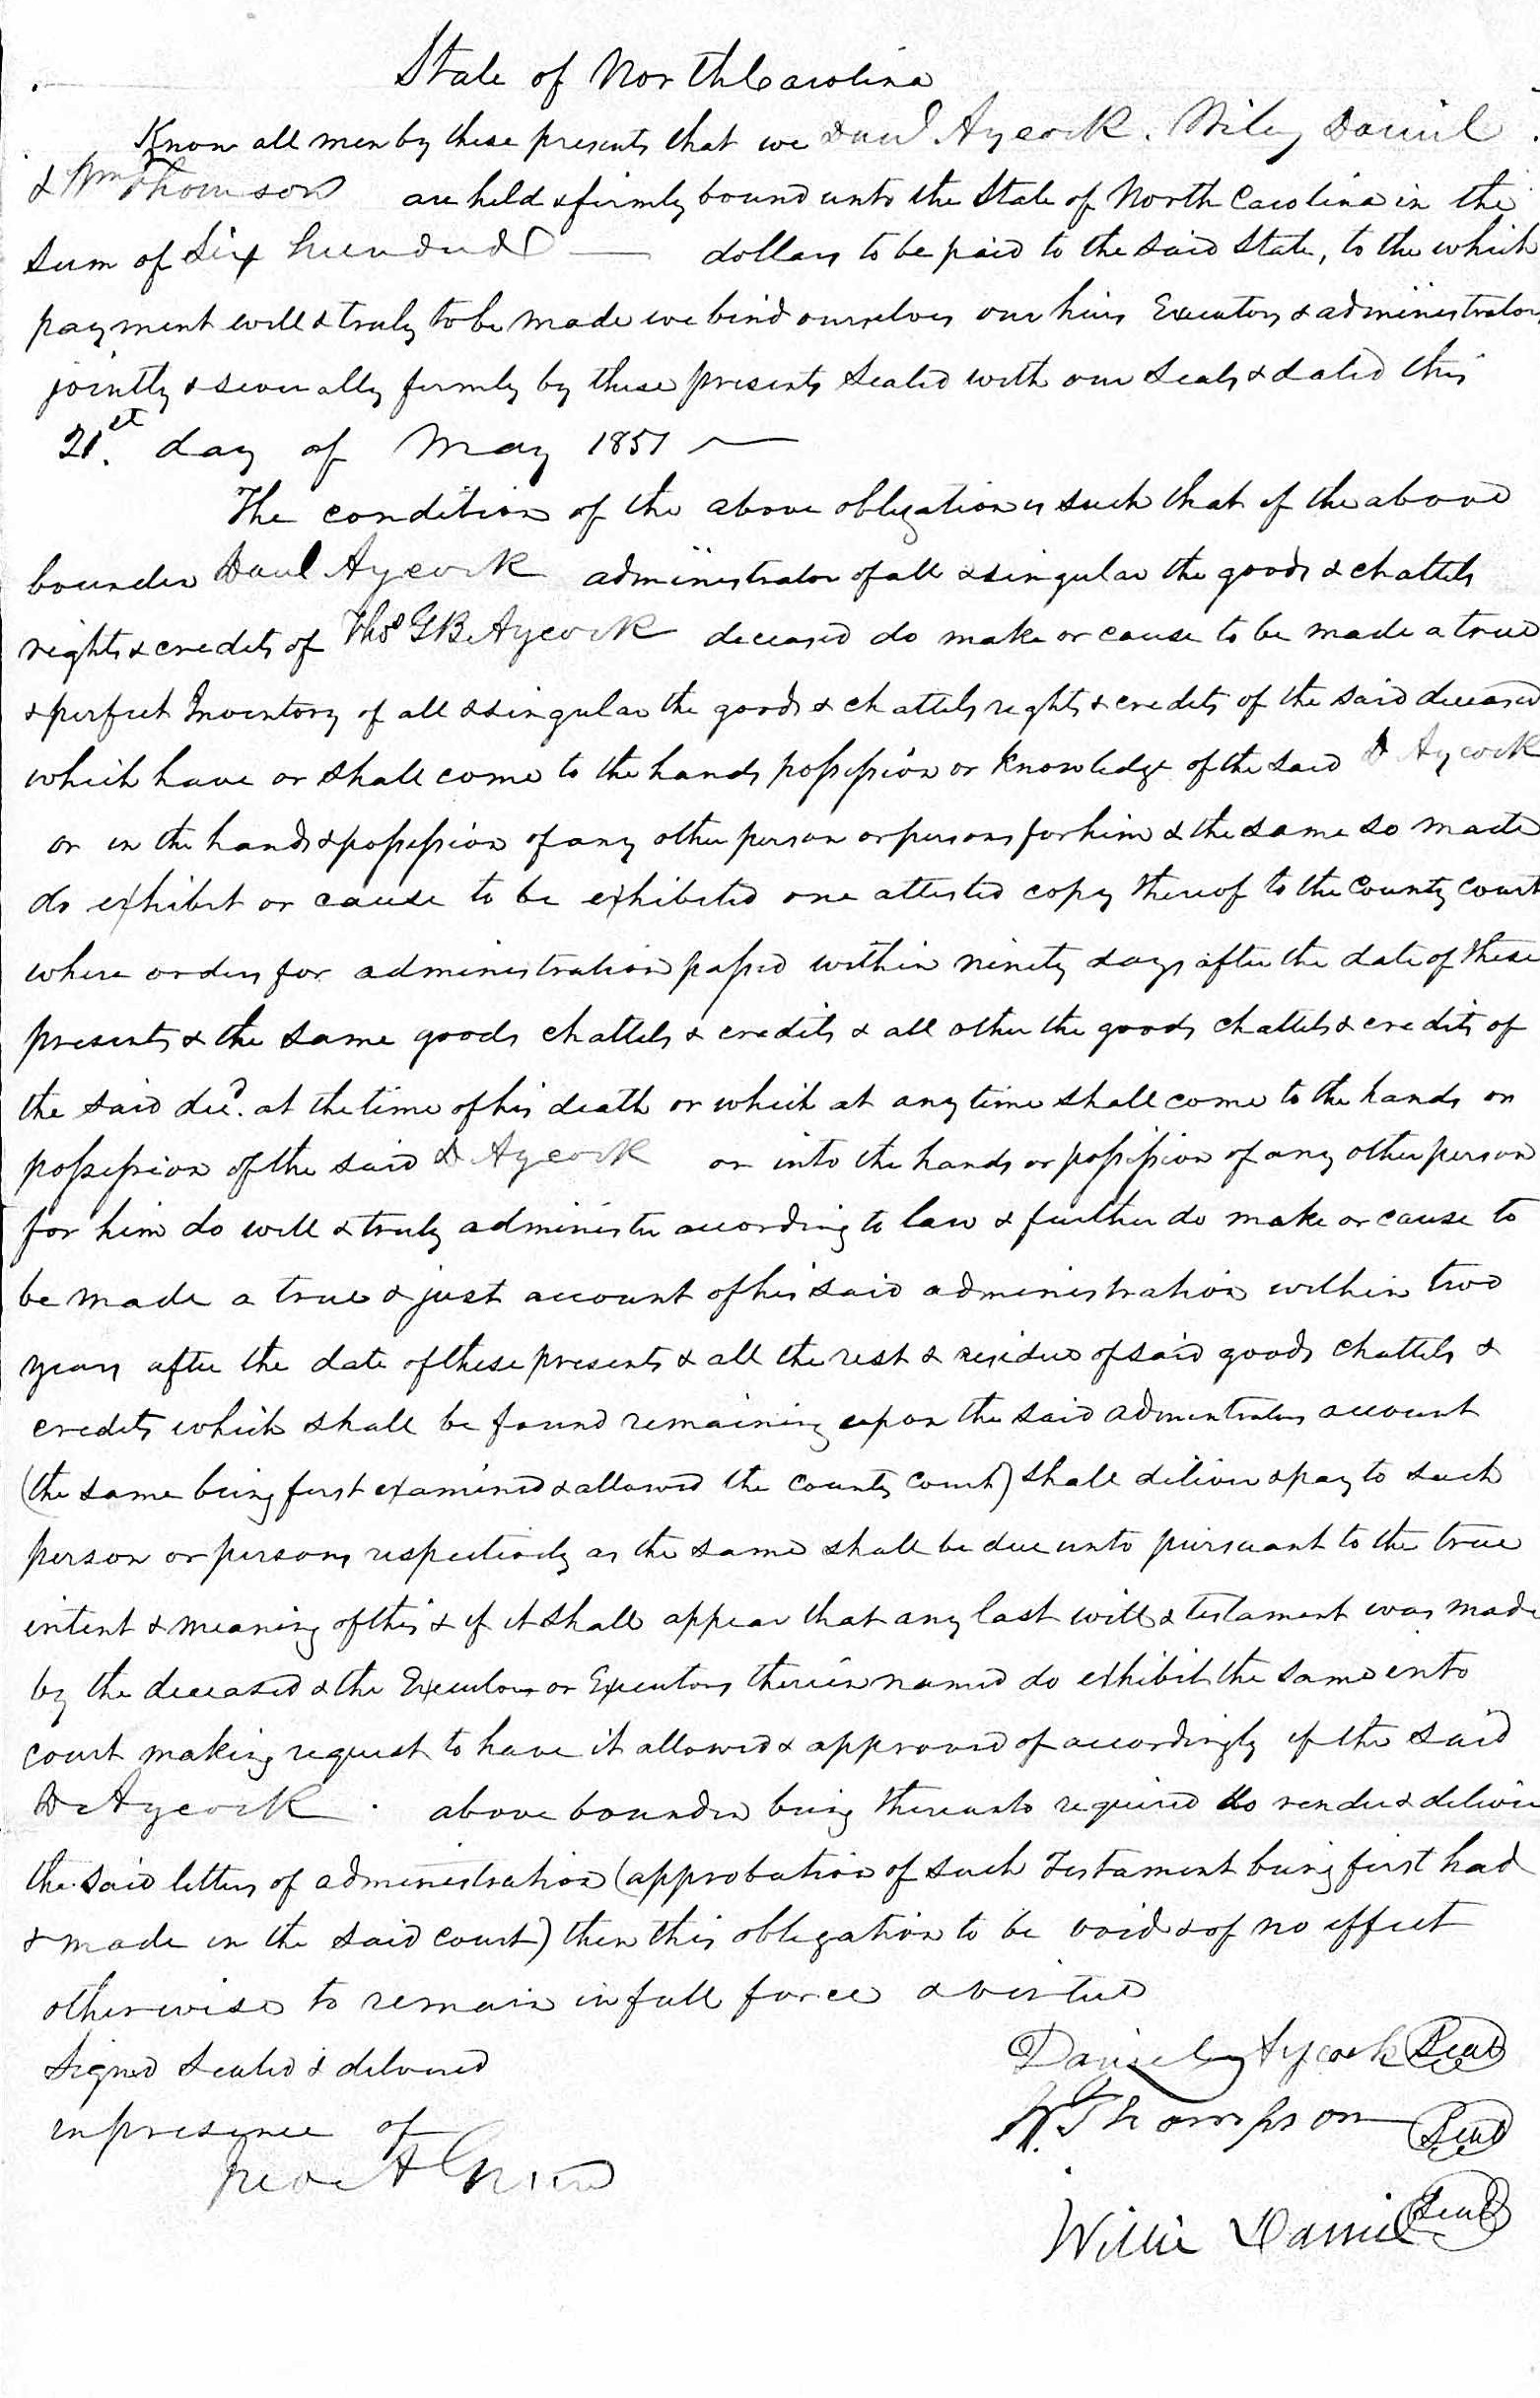 State of North Carolina
Know all men by these presents that we Danl Aycock. Wiley Daniel.
& Wm Thomson are held & firmly bound unto the State of North Carolina in the
sum of Six hundred — dollars to be paid to the said State, to the which
payment well & truly to be made we bind ourselves our heirs Executors & administrators
jointly & severally firmly by these presents sealed with our seals & dated this
21st. day of May 1851 —
The condition of the above obligation is such that if the above
bounden Danl Aycock administrator of all & singular the goods & chattels
rights & credits of Thos G B Aycock deceased do make or cause to be made a true
& perfect Inventory of all & singular the goods & chattels rights & credits of the said deceased
which have or shall come to the hands possession or knowledge of the said D Aycock
or in the hands & possession of any other person or persons for him & the same so made
do exhibit or cause to be exhibited one attested copy thereof to the County Court
where orders for administration passed within ninety days after the date of these
presents & the same goods chattels & credits & all other the goods chattels & credits of
the said decd. at the time of his death or which at any time shall come to the hands or
possession of the said D Aycock or into the hands or possession of any other person
for him do well & truly administer according to law & further do make or cause to
be made a true & just account of his said administration within two
years after the date of these presents & all the rest & residue of said goods chattels &
credits which shall be found remaining upon the said administrators account
(the same being first examined & allowed the County Court) shall deliver & pay to such
person or persons respectively as the same shall be due unto pursuant to the true
intent & meaning of this & if it shall appear that any last will & testament was made
by the deceased & the Executors or Executors therein named do exhibit the same into
court making request to have it allowed & approved of accordingly if the said
D Aycock. above bounden being thereunto required do render & deliver
the said letters of administration (approbation of such Testament being first had
& made in the said court) then this obligation to be void & of no effect
otherwise to remain in full force & virtue
Signed Sealed & delivered
in presence of
Daniel Aycock Seal
W. Thompson Seal
Willie Daniel Seal